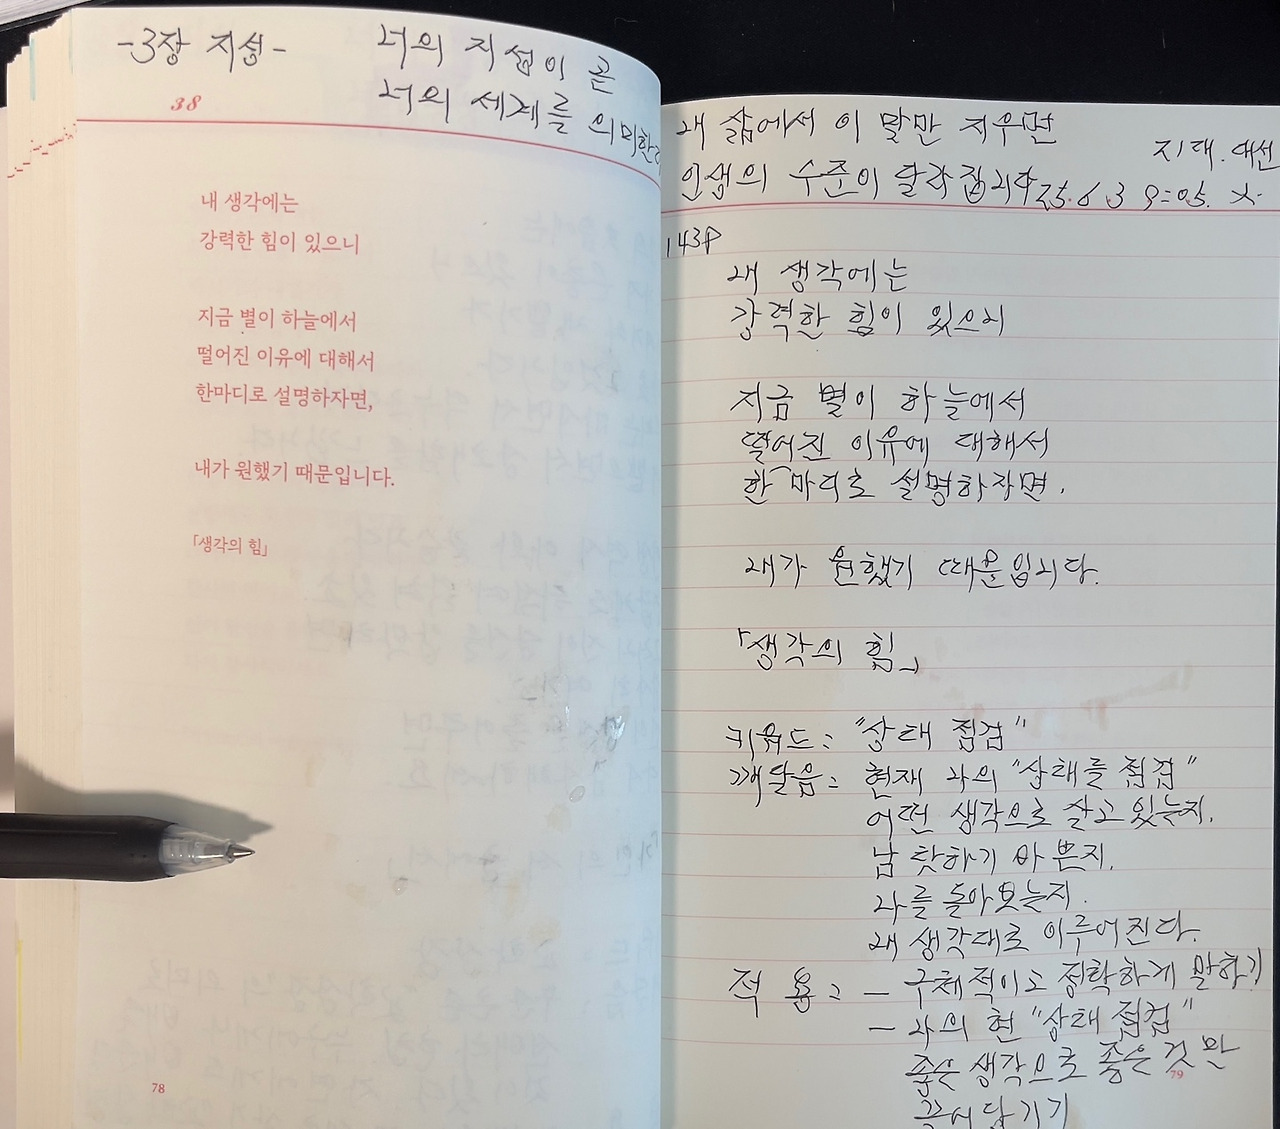 -3장 지성-
너의 지성이 곧
너의 세계를 의미한다
38
내 생각에는
강력한 힘이 있으니
지금 별이 하늘에서
떨어진 이유에 대해서
한마디로 설명하자면,
내가 원했기 때문입니다.
「생각의 힘」
78
내 삶에서 이 말만 지우면
인생의 수준이 달라집니다
지대. 대선
25. 6. 3 9=05. 火.
143P
내 생각에는
강력한 힘이 있으니
지금 별이 하늘에서
떨어진 이유에 대해서
한 마디로 설명하자면.
내가 원했기 때문입니다.
「생각의 힘」
키워드: "상태 점검"
깨달음: 현재 나의 "상태를 점검"
어떤 생각으로 살고 있는지.
남 탓하기 바쁜지.
나를 돌아보는지.
내 생각대로 이루어진다.
적 용: - 구체적이고 정확하게 말하기
- 나의 현 "상태 점검"
좋은 생각으로 좋은 것만
끌어당기기
79